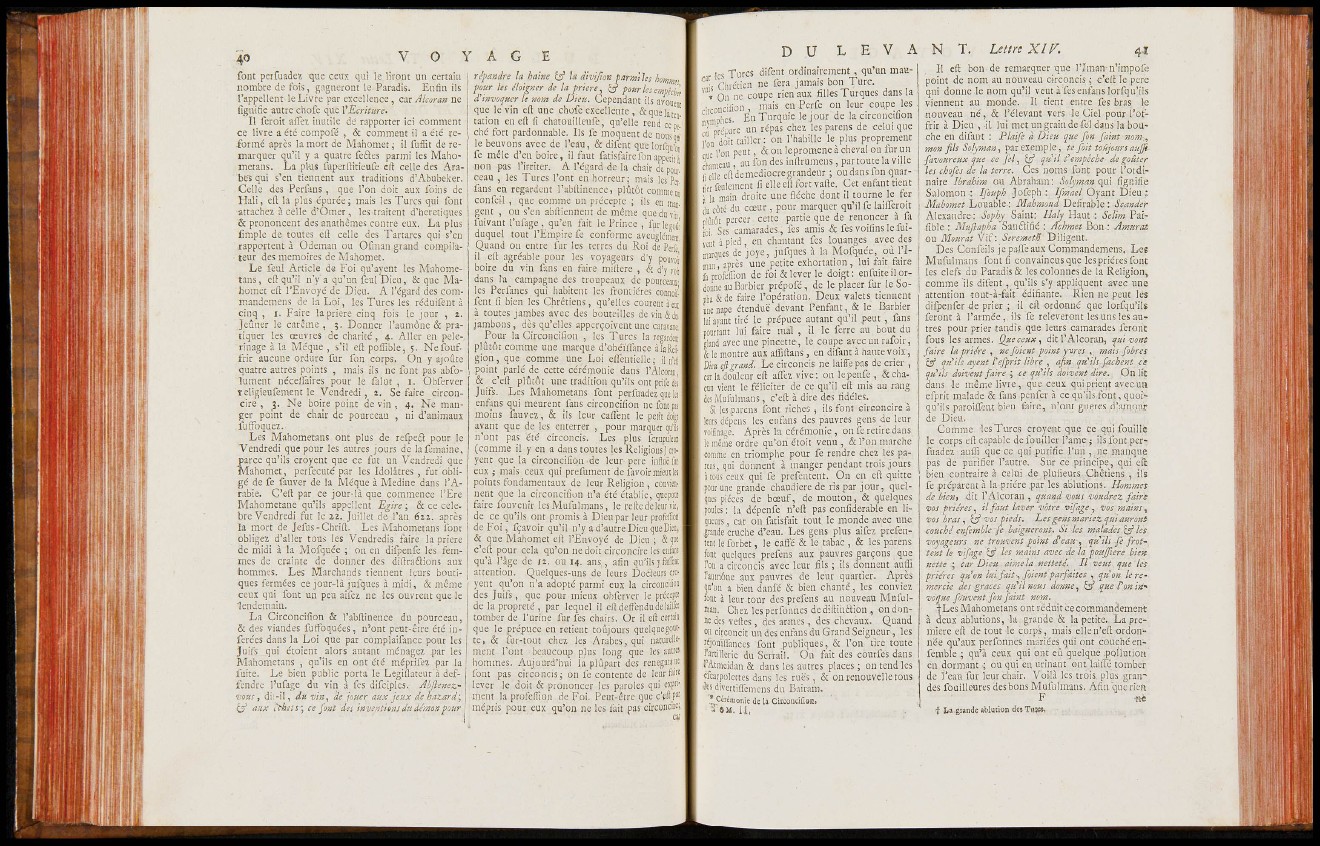 40 VOYAGE
sont persuadez que ceux qui le liront un certain
nombre de fois, gagneront le Paradis. Enfin ils
l'appellent le Livre par excellence, car Alcoran ne
signifie autre chose que l'Ecriture.
Il seroit assez inutile de rapporter ici comment
ce livre a été composé, & comment il a été re-
formé après la mort de Mahomet; il suffit de re-
marquer qu'il y a quatre sectes parmi les Maho-
metans. La plus superstitieuse est celle des Ara-
bes qui s'en tiennent aux traditions d'Abubeker.
Celle des Persans, que l'on doit aux soins de
Hali, est la plus épurée; mais les Turcs qui sont
attachez à celle d'Omer, les traitent d'heretiques
& prononcent des anathêmes contre eux. La plus
simple de toutes est celle des Tartares qui s'en
rapportent à Odeman ou Osman grand compila-
teur des memoires de Mahomet.
Le seul Article de Foi qu'ayent les Mahome-
tans, est qu'il n'y a qu'un seul Dieu, & que Ma-
homet est l'Envoyé de Dieu. A l'égard des com-
mandemens de la Loi, les Turcs les réduisent à
cinq, 1. Faire la priere cinq fois le jour, 2.
Jeûner le carême, 3. Donner l'aumône & pra-
tiquer les œuvres de charité, 4. Aller en pele-
rinage à la Méque, s'il est possible, 5. Ne souf-
frir aucune ordure sur son corps. On y ajoûte
quatre autres points, mais ils ne sont pas abso-
lument nécessaires pour le salut, 1. Observer
religieusement le Vendredi, 2. Se faire circon-
cire, 3. Ne boire point de vin, 4. Ne man-
ger point de chair de pourceau, ni d'animaux
suffoquez.
Les Mahometans ont plus de respect pour le
Vendredi que pour les autres jours de la semaine,
parce qu'ils croyent que ce fut un Vendredi que
Mahomet, persecuté par les Idolâtres, fut obli-
gé de se sauver de la Méque à Medine dans l'A-
rabie. C'est par ce jour-là que commence l'Ere
Mahometane qu'ils appellent Egire; & ce cele-
bre Vendredi fut le 22. Juillet de l'an 622. après
la mort de Jesus-Christ. Les Mahometans sont
obligez d'aller tous les Vendredis faire la priere
de midi à la Mosquée; on en dispense les fem-
mes de crainte de donner des distractions aux
hommes. Les Marchands tiennent leurs bouti-
ques fermées ce jour-là jusques à midi, & même
ceux qui sont un peu aisez ne les ouvrent que le
lendemain.
La Circoncision & l'abstinence du pourceau,
& des viandes suffoquées, n'ont peut-être été in-
serées dans la Loi que par complaisance pour les
Juifs qui étoient alors autant ménagez par les
Mahometans, qu'ils en ont été méprisez par la
suite. Le bien public porta le Legislateur à def-
fendre l'usage du vin à ses disciples. Abstenez-
vous, dit-il, du vin, de jouer aux jeux de hazard;
& aux échess; ce sont des inventions du démon pour
répandre la haine & la division parmi les hommes,
pour les éloigner de la priere, & pour les empêcher
d'invoquer le nom de Dieu. Cependant ils avouent
que le vin est une chose excellente, & que la ten-
tation en est si chatouilleuse, qu'elle rend ce pe-
ché fort pardonnable. Ils se moquent de nous qui
le beuvons avec de l'eau, & disent que lorsqu'on
se mêle d'en boire, il faut satisfaire son appetit &
non pas l'irriter. A l'égard de la chair de pour-
ceau, les Turcs l'ont en horreur; mais les Per-
sans en regardent l'abstinence, plûtôt comme un
conseil, que comme un précepte; ils en man-
gent, ou s'en abstiennent de même que du vin,
suivant l'usage, qu'en fait le Prince, sur le goût
duquel tout l'Empire se conforme aveuglément.
Quand on entre sur les terres du Roi de Perse,
il est agréable pour les voyageurs d'y pouvoir
boire du vin sans en faire mistere, & d'y voir
dans la campagne des troupeaux de pourceaux;
les Persanes qui habitent les frontiéres connois-
sent si bien les Chrêtiens, qu'elles courent à eux
à toutes jambes avec des bouteilles de vin & des
jambons, dès qu'elles apperçoivent une caravane.
Pour la Circoncision, les Turcs la regardent
plûtôt comme une marque d'obéïssance à la Reli-
gion, que comme une Loi essentielle; il n'est
point parlé de cette cérémonie dans l'Alcoran,
& c'est plûtôt une tradition qu'ils ont prise des
Juifs. Les Mahometans sont persuadez que les
enfans qui meurent sans circoncision ne sont pas
moins sauvez, & ils leur cassent le petit doigt
avant que de les enterrer, pour marquer qu'ils
n'ont pas été circoncis. Les plus scrupuleux
(comme il y en a dans toutes les Religions) cro-
yent que la circoncision de leur pere influe sur
eux; mais ceux qui presument de savoir mieux les
points fondamentaux de leur Religion, convien-
nent que la circoncision n'a été établie, que pour
faire souvenir les Musulmans, le reste de leur vie,
de ce qu'ils ont promis à Dieu par leur profession
de Foi, sçavoir qu'il n'y a d'autre Dieu que Dieu,
& que Mahomet est l'Envoyé de Dieu; & que
c'est pour cela qu'on ne doit circoncire les enfans
qu'à l'âge de 12. ou 14. ans, afin qu'ils y fassent
attention. Quelques-uns de leurs Docteurs cro-
yent qu'on n'a adopté parmi eux la circoncision
des Juifs, que pour mieux observer le précepte
de la propreté, par lequel il est deffendu de laisser
tomber de l'urine sur ses chairs. Or il est certain
que le prépuce en retient toûjours quelque gout-
te, & sur-tout chez les Arabes, qui naturelle-
ment l'ont beaucoup plus long que les autres
hommes. Aujourd'hui la plûpart des renegats ne
sont pas circoncis; on se contente de leur faire
lever le doit & prononcer les paroles qui expri-
ment la profession de Foi. Peut-être que c'est par
mépris pour eux qu'on ne les fait pas circoncire;
car
DU LEVANT. Lettre XIV. 41
car les Turcs disent ordinairement, qu'un mau-
vais Chrêtien ne sera jamais bon Turc.
* On ne coupe rien aux filles Turques dans la
circoncision, mais en Perse on leur coupe les
nymphes. En Turquie le jour de la circoncision
on prépare un répas chez les parens de celui que
l'on doit tailler: on l'habille le plus proprement
que l'on peut, & on le promene à cheval ou sur un
chameau, au son des instrumens, par toute la ville
si elle est de mediocre grandeur; ou dans son quar-
tier seulement si elle est fort vaste. Cet enfant tient
à la main droite une fléche dont il tourne le fer
du côté du cœur, pour marquer qu'il se laisseroit
plûtôt percer cette partie que de renoncer à sa
foi. Ses camarades, ses amis & ses voisins le sui-
vent à pied, en chantant ses louanges avec des
marques de joye, jusques à la Mosquée, où l'I-
man, après une petite exhortation, lui fait faire
sa profession de foi & lever le doigt: ensuite il or-
donne au Barbier préposé, de le placer sur le So-
pha & de faire l'opération. Deux valets tiennent
une nape étenduë devant l'enfant, & le Barbier
lui ayant tiré le prépuce autant qu'il peut, sans
pourtant lui faire mal, il le serre au bout du
gland avec une pincette, le coupe avec un rasoir,
& le montre aux assistans, en disant à haute voix,
Dieu est grand. Le circoncis ne laisse pas de crier,
car la douleur est assez vive: on le pense, & cha-
cun vient le féliciter de ce qu'il est mis au rang
des Musulmans, c'est à dire des fidéles.
Si les parens sont riches, ils font circoncire à
leurs dépens les enfans des pauvres gens de leur
voisinage. Après la cérémonie, on se retire dans
le même ordre qu'on étoit venu, & l'on marche
comme en triomphe pour se rendre chez les pa-
rens, qui donnent à manger pendant trois jours
à tous ceux qui se presentent. On en est quitte
pour une grande chaudiere de ris par jour, quel-
ques piéces de bœuf, de mouton, & quelques
poules: la dépense n'est pas considerable en li-
queurs, car on satisfait tout le monde avec une
grande cruche d'eau. Les gens plus aisez presen-
tent le sorbet, le caffé & le tabac, & les parens
font quelques presens aux pauvres garçons que
l'on a circoncis avec leur fils; ils donnent aussi
l'aumône aux pauvres de leur quartier. Après
qu'on a bien dansé & bien chanté, les conviez
font à leur tour des presens au nouveau Musul-
man. Chez les personnes de distinction, on don-
ne des vestes, des armes, des chevaux. Quand
on circoncit un des enfans du Grand Seigneur, les
réjouissances sont publiques, & l'on tire toute
l'artillerie du Serrail. On fait des courses dans
l'Atmeidan & dans les autres places; on tend les
escarpolettes dans les ruës, & on renouvelle tous
les divertissemens du Bairam.
* Cérémonie de la Circoncision.
TOM. II.
Il est bon de remarquer que l'Iman n'impose
point de nom au nouveau circoncis; c'est le pere
qui donne le nom qu'il veut à ses enfans lorsqu'ils
viennent au monde. Il tient entre ses bras le
nouveau né, & l'élevant vers le Ciel pour l'of-
frir à Dieu, il lui met un grain de sel dans la bou-
che en disant: Plaise à Dieu que son saint nom,
mon fils Solyman, par exemple, te soit toûjours aussi
savoureux que ce sel, & qu'il t'empêche de goûter
les choses de la terre. Ces noms sont pour l'ordi-
naire Ibrahim ou Abraham: Solyman qui signifie
Salomon: Isouph Joseph: Ismael Oyant Dieu:
Mahomet Louable: Mahmoud Desirable: Scander
Alexandre: Sophy Saint: Haly Haut: Selim Pai-
sible: Mustapha Sanctifié: Achmet Bon: Amurat
ou Monrat Vif: Seremeth Diligent.
Des Conseils je passe aux Commandemens. Les
Musulmans sont si convaincus que les priéres sont
les clefs du Paradis & les colonnes de la Religion,
comme ils disent, qu'ils s'y appliquent avec une
attention tout-à-fait édifiante. Rien ne peut les
dispenser de prier; il est ordonné que lorsqu'ils
seront à l'armée, ils se releveront les uns les au-
tres pour prier tandis que leurs camarades seront
sous les armes. Que ceux, dit l'Alcoran, qui vont
faire la priére, ne soient point yvres, mais sobres
& qu'ils ayent l'esprit libre, afin qu'ils sachent ce
qu'ils doivent faire; ce qu'ils doivent dire. On lit
dans le même livre, que ceux qui prient avec un
esprit malade & sans penser à ce qu'ils font, quoi-
qu'ils paroissent bien faire, n'ont gueres d'amour
de Dieu.
Comme les Turcs croyent que ce qui souille
le corps est capable de souiller l'ame; ils sont per-
suadez aussi que ce qui purifie l'un, ne manque
pas de purifier l'autre. Sur ce principe, qui est
bien contraire à celui de plusieurs Chêtiens, ils
se préparent à la priére par les ablutions. Hommes
de bien, dit l'Alcoran, quand vous voudrez faire
vos priéres, il faut laver vôtre visage, vos mains,
vos bras, & vos pieds. Les gens mariez qui auront
couché ensemble se baigneront. Si les malades & les
voyageurs ne trouvent point d'eau, qu'ils se frot-
tent le visage & les mains avec de la poussiere bien
nette; car Dieu aime la netteté. Il veut que les
priéres qu'on lui fait, soient parfaites, qu'on le re-
mercie des graces qu'il nous donne, & que l'on in-
voque souvent son saint nom.
†Les Mahometans ont réduit ce commandement
à deux ablutions, la grande & la petite. La pre-
miére est de tout le corps, mais elle n'est ordon-
née qu'aux personnes mariées qui ont couché en-
semble; qu'à ceux qui ont eû quelque pollution
en dormant; ou qui en urinant ont laissé tomber
de l'eau sur leur chair. Voilà les trois plus gran-
des souilleures des bons Musulmans. Afin que rien
F ne
† La grande ablution des Turcs.